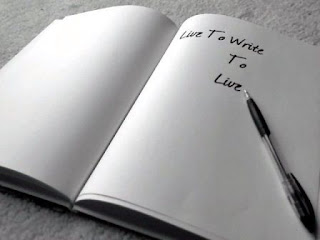 Live To Write
To
Live